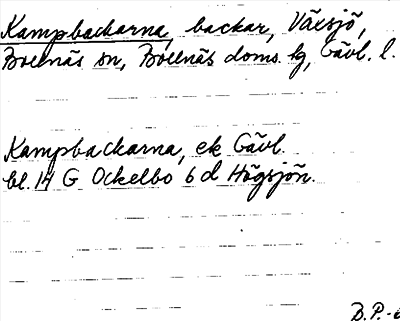 Kampbackarna, backar, Växsjö,
Bollnäs sn, Bollnäs doms. hg, Gävl. l.
Kampbackarna, ek Gävl.
bl. 14 G Ockelbo 6 d Högsjön.
B.P.-